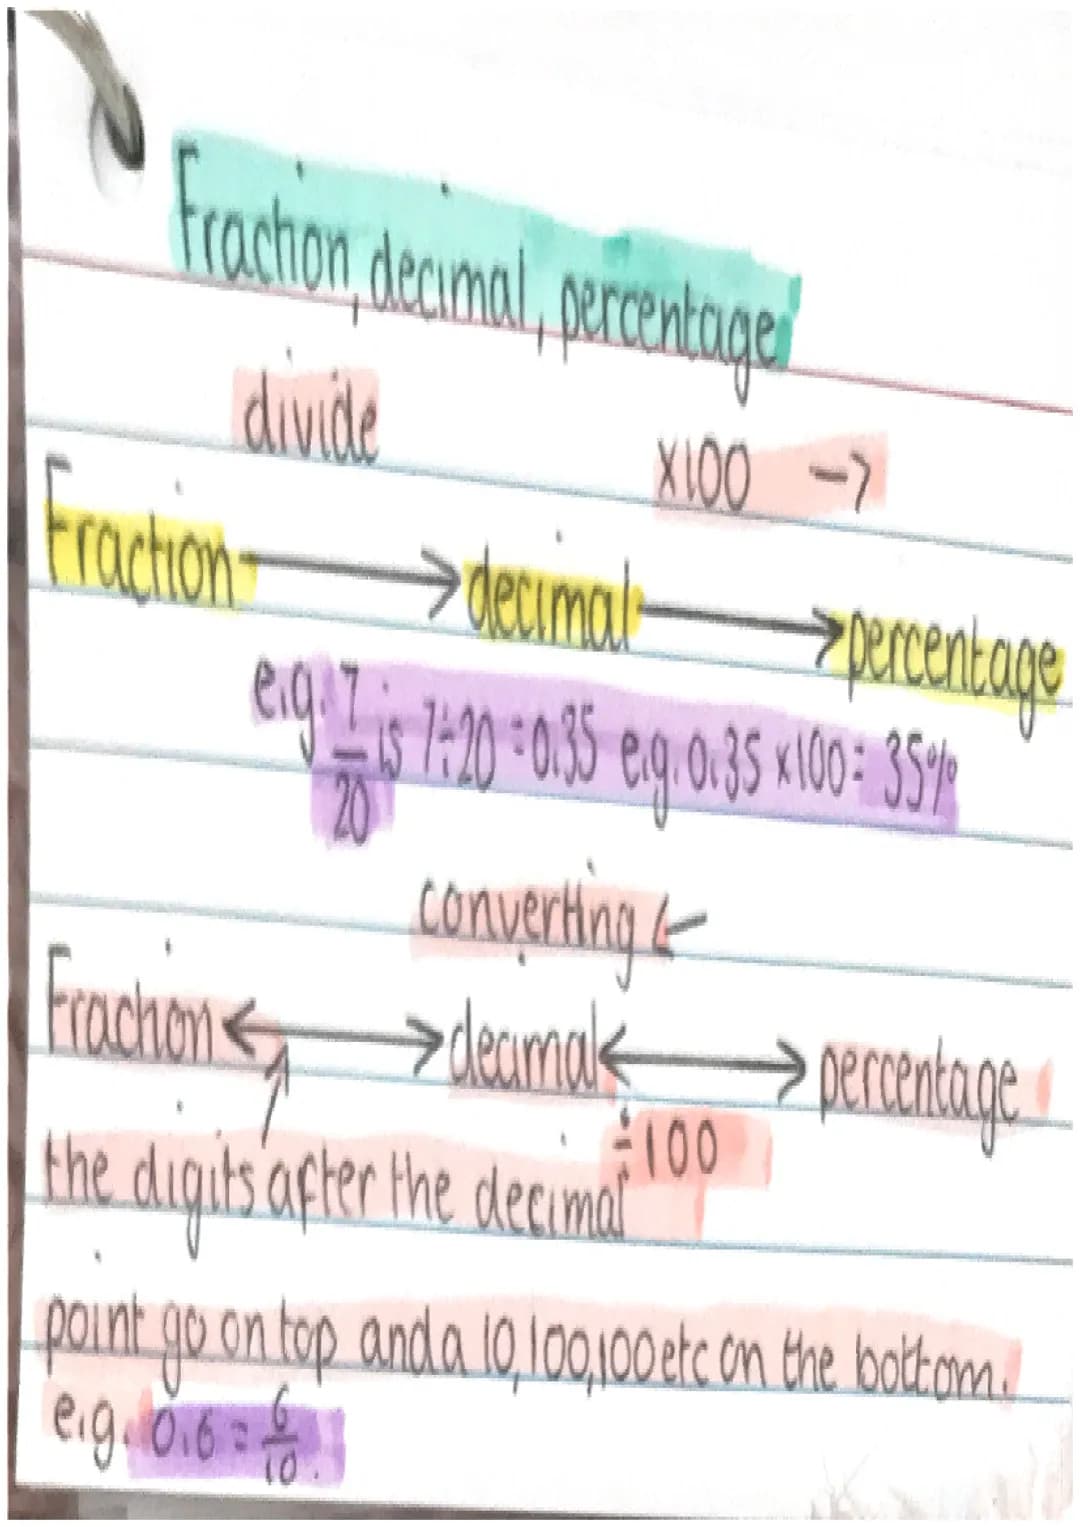 Fraction, decimal, percentage
divide
x100 ->
Fraction → decimal → percentage
e.g. 7/20 is 7÷20 = 0.35 e.g. 0.35 x100 = 35%
converting ←
Fraction ↔ decimal ↔ percentage
÷100
the digits after the decimal
point go on top and a 10,100,100 etc on the bottom.
e.g. 0.6 = 6/10.